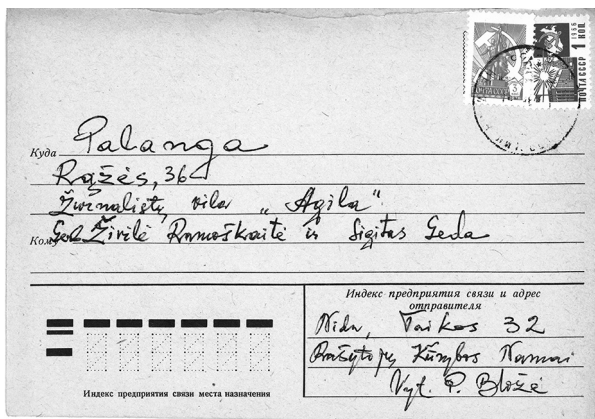 1966
1 КОП.
ПОЧТА СССР
Куда Palanga
Rąžės, 36
Žurnalistų vila „Agila“
Кому Gerb. Živilė Ramoškaitė ir Sigitas Geda
Индекс предприятия связи и адрес
отправителя
Nida, Taikos 32
Rašytojų Kūrybos Namai
Vyt. P. Bložė
Индекс предприятия связи места назначения